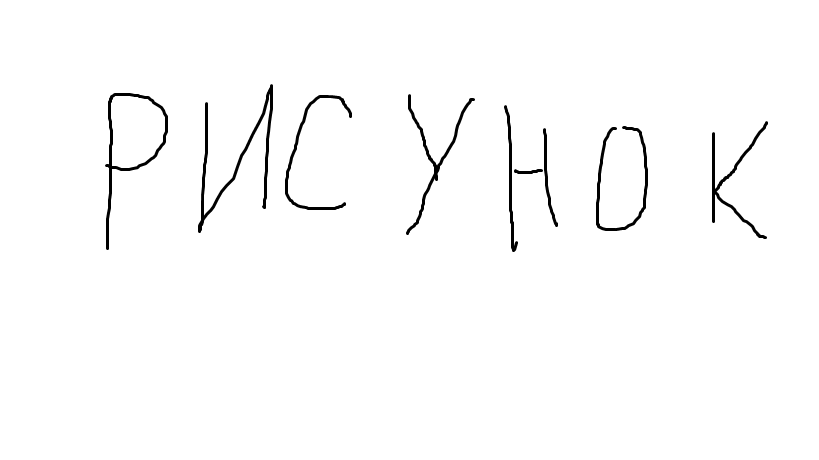 РИСУНОК